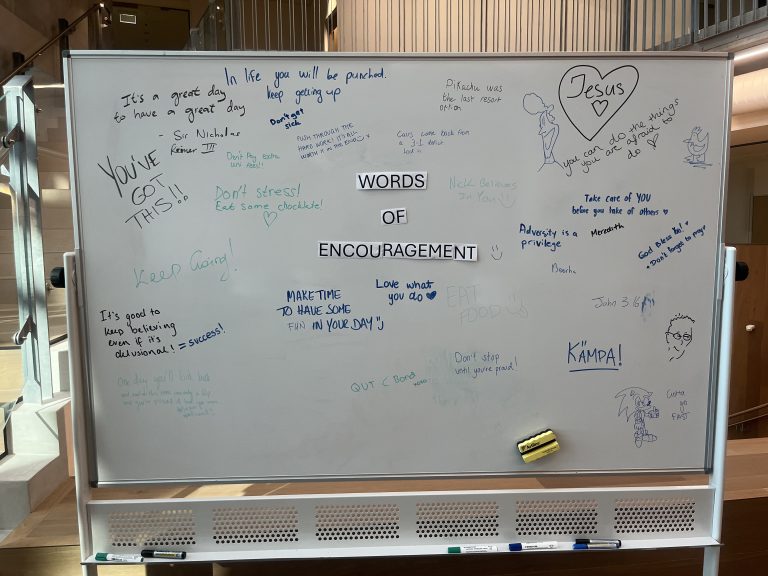 It's a great day
to have a great day
- Sir Nicholas
III
In life you will be punched.
keep getting up
Don't get
sick
PUSH THROUGH THE
HARD WORK! IT'S ALL
WORTH IT IN THE END
Pikachu was
the last resort
option
Jesus
you can do the things
you are afraid to
do
YOU'VE
GOT
THIS!!
Don't Pay
uni fees!!
Cairs come back from
a 3-1 deficit
Don't stress!
Eat some chocklate!
WORDS
OF
ENCOURAGEMENT
Nick Believes
In You
Take care of YOU
before you take of others
Adversity is a
privilege
Meredith
God Bless Ya!
Don't forget to pray
Keep Going!
Love what
you do
MAKE TIME
TO HAVE SOME
FUN IN YOUR DAY
EAT
FOOD
John 3:16
It's good to
keep believing
even if it's
delusional! = success!
KÄMPA!
Don't stop
until you're proud!
One day you'll look back
QUT < Bond
Gotta
go
FAST